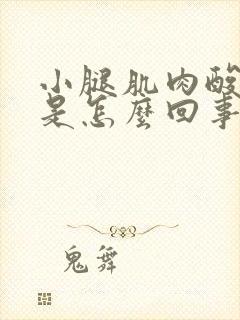 小腿肌肉酸
是怎麼回事
鬼舞